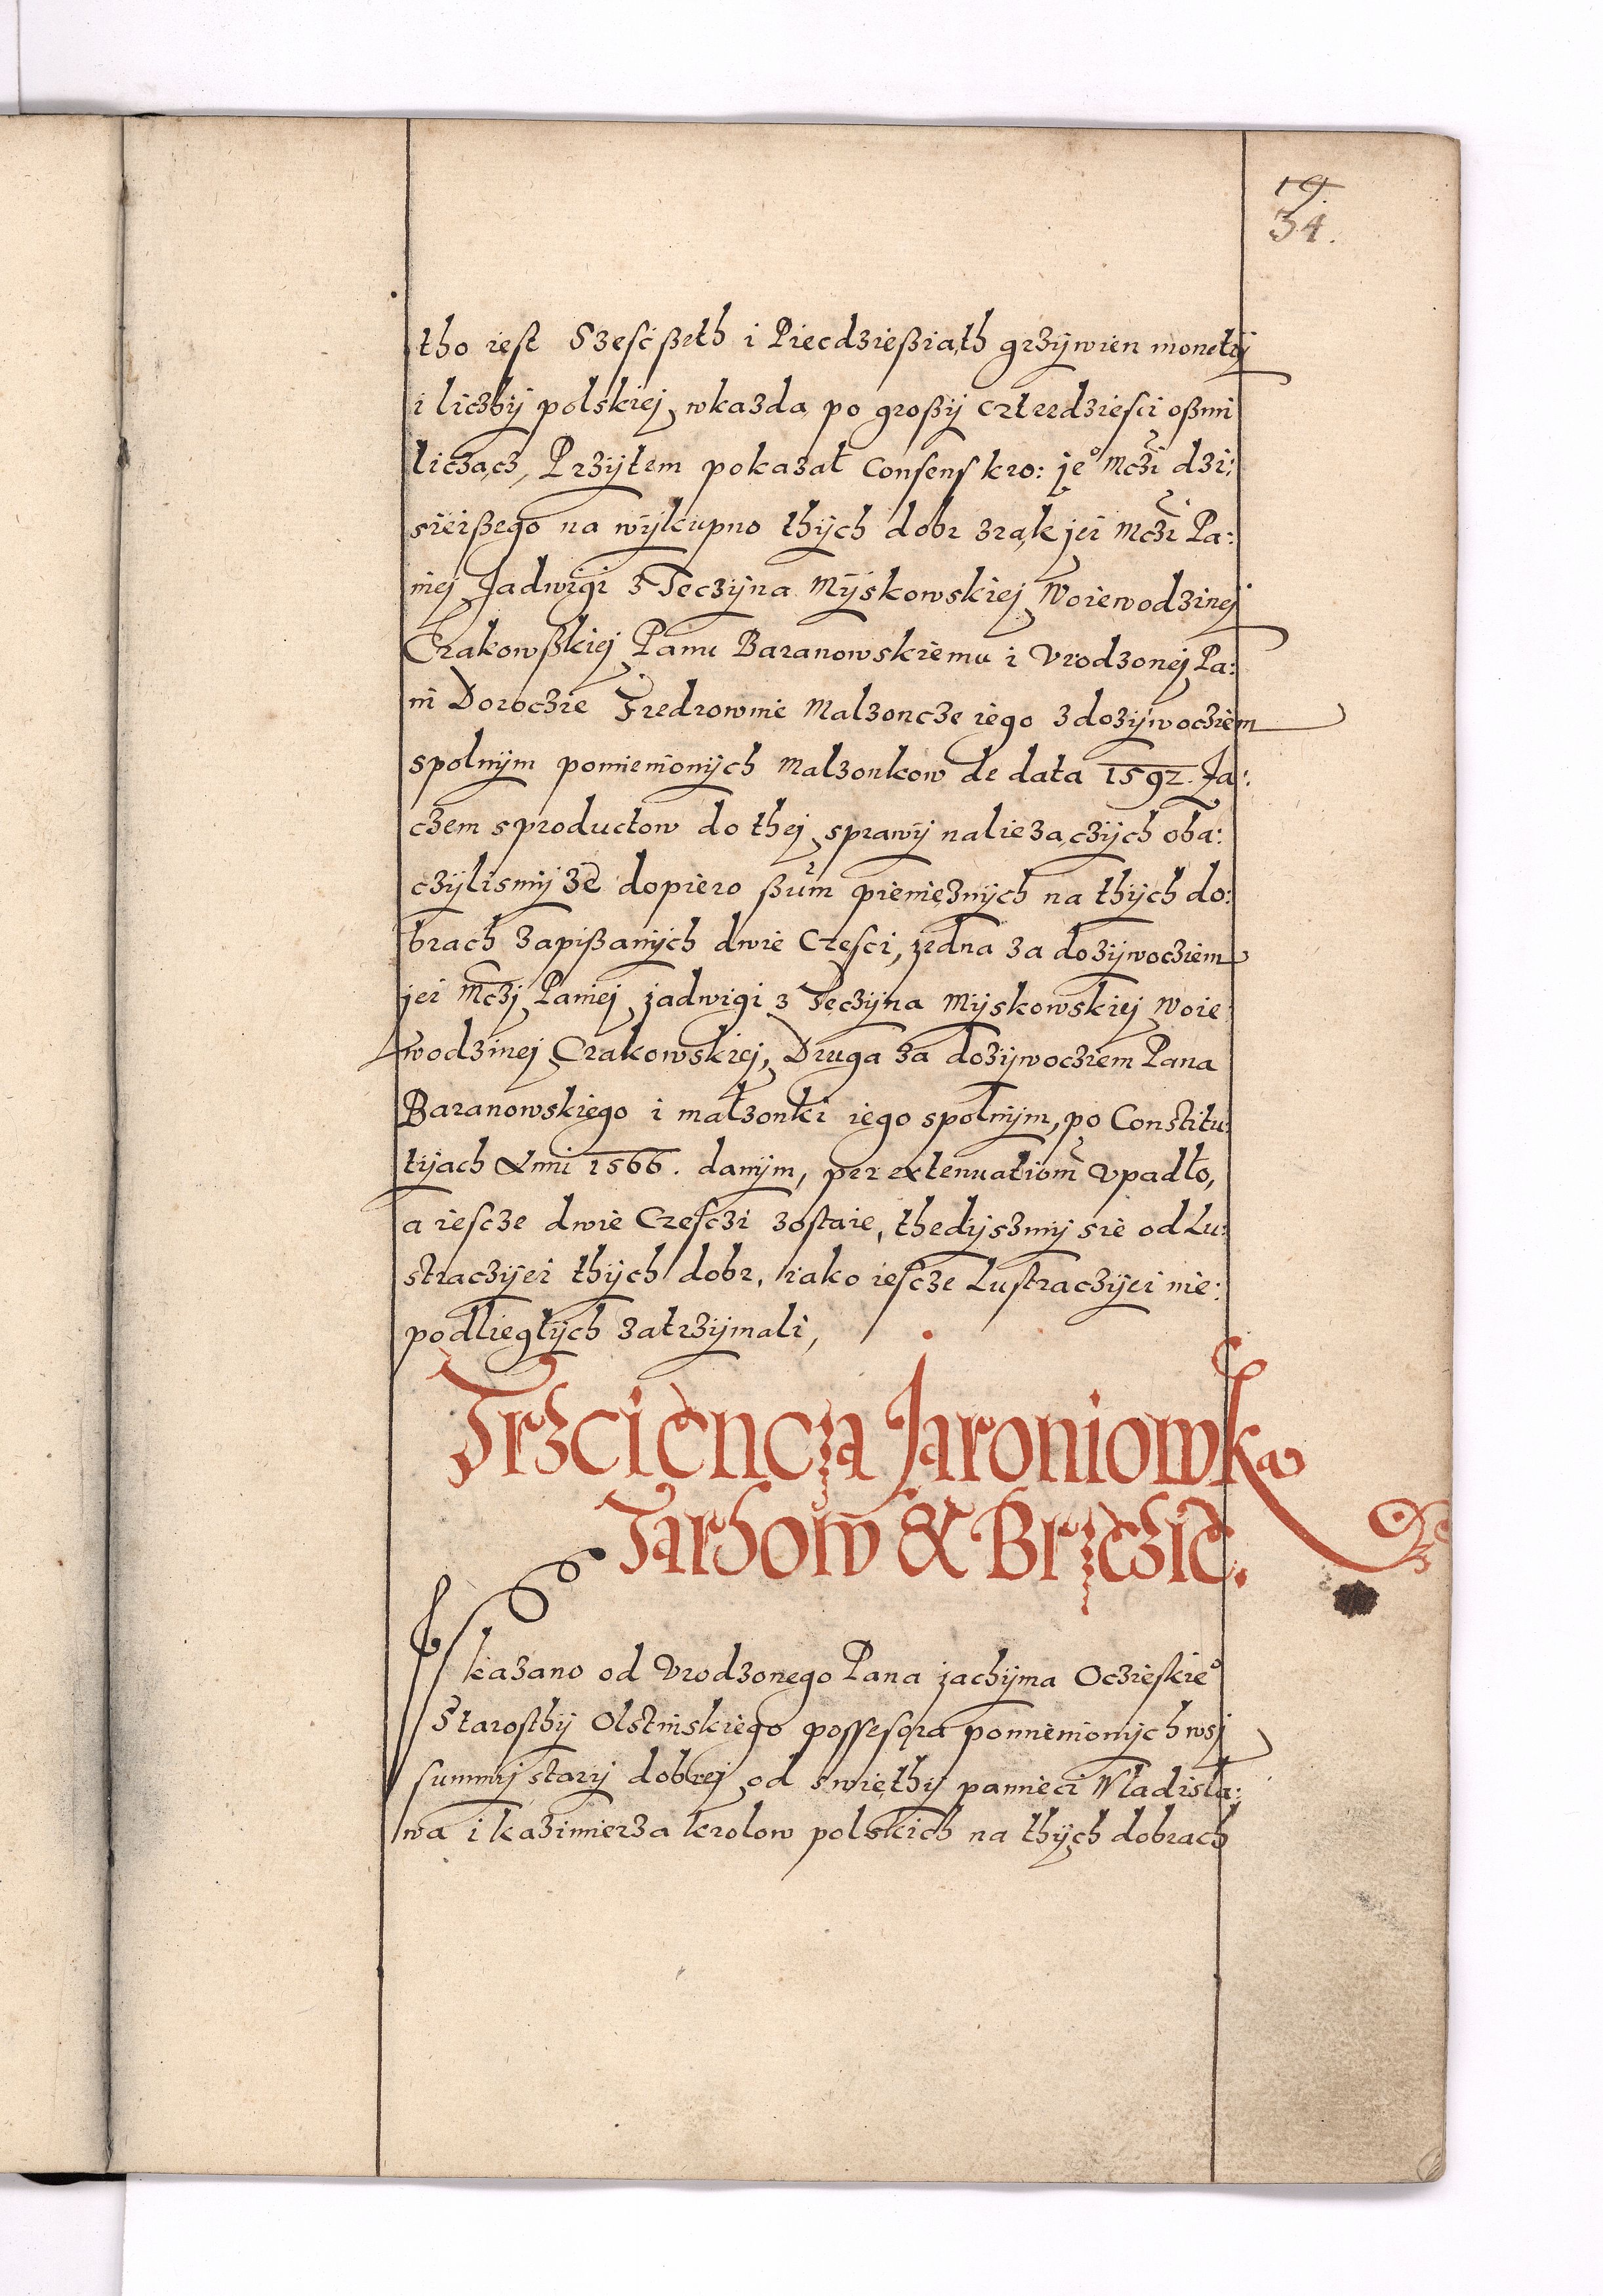 19
34.
tho iest Szescßeth i Piecdzießia,th grzÿwien monetÿ
i liczbÿ polskiej wkazda, po großÿ czterdziesci oßmi
licza,cz, Przÿtem pokazał Consens kro: je° Mczi dzi:
sieißego na wÿkupno thÿch dobr zra,k jei Mczi Pa:
niej Jadwigi z Teczÿna Mÿskowskiej Woiewodzinej
Crakowßkiej Panu Baranowskiemu i Vrodzonej Pa:
ni Doroczie Fredrownie Malzoncze iego z dozÿwocziem
spolnÿm pomienionÿch Malzonkow de data 1592. Ja:
czem sproductow do thej sprawÿ nalieza,czÿch oba:
czÿlismÿ ze dopiero ßum pienieznÿch na thÿch do:
brach zapißanÿch dwie Czesci, jedna za dozÿwocziem
jei Mczj Paniej jadwigi z Teczÿna Mÿskowskiej Woie:
wodzinej Crakowskiej, Druga za dozÿwocziem Pana
Baranowskiego i małzonki iego spolnÿm, po Constitu:
tÿach Anni 1566. danÿm, per extenuationem Vpadło,
a iescze dwie Czesczi zostaie, thedÿszmÿ sie od Lu:
straczÿei thÿch dobr, iako iescze Lustraczÿei nie:
podliegłÿch zatrzÿmali,
Trzciencza Jaroniowka
Tarhow & Brzezie.
Vkazano od Vrodzonego Pana jachÿma Oczieskie°
Starosthÿ Olstinskiego possessora pomienionÿch wsj
summÿ starÿ dobrej od swiethÿ pamieci Władisła:
wa i kazimierza krolow polskich na thÿch dobrach